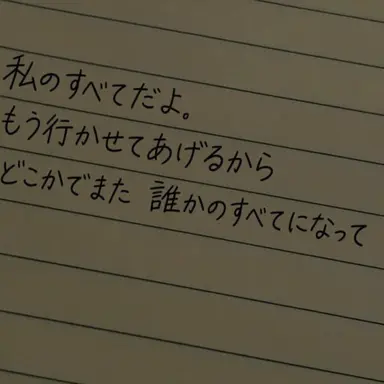 私のすべてだよ。
もう行かせてあげるから
どこかでまた 誰かのすべてになって